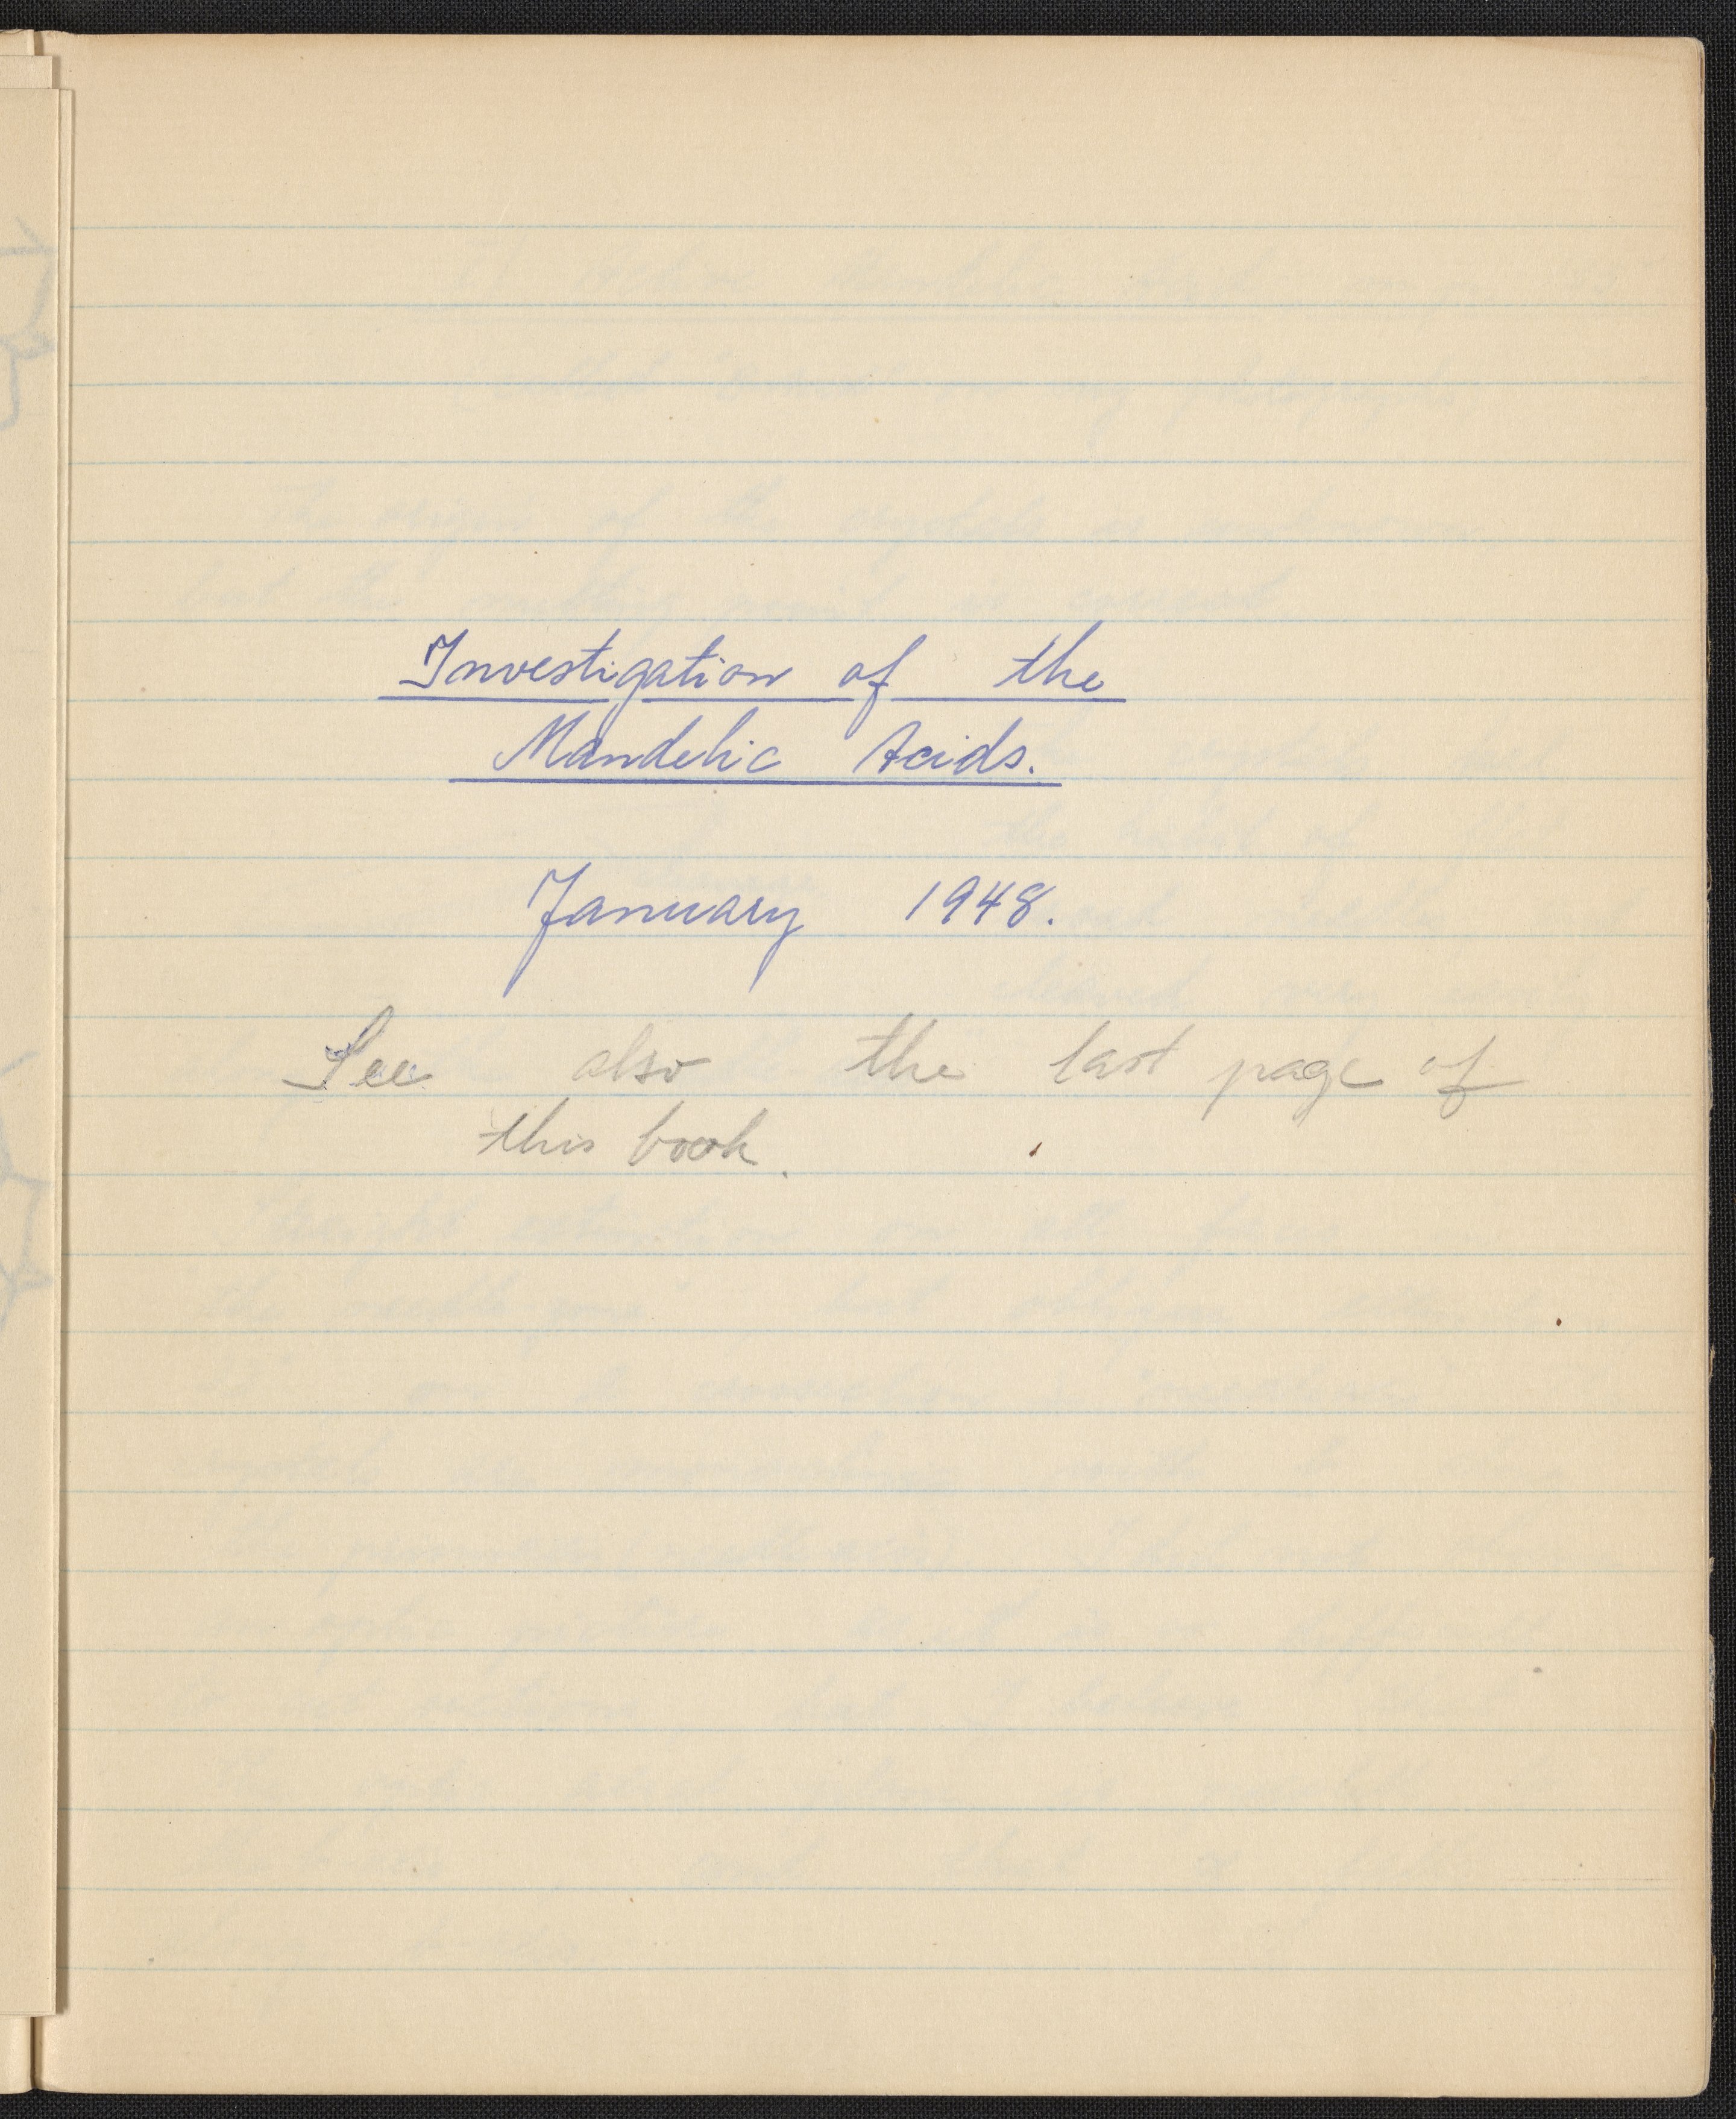 Investigation of the
Mandelic Acids.
January 1948.
See also the last page of
this book.